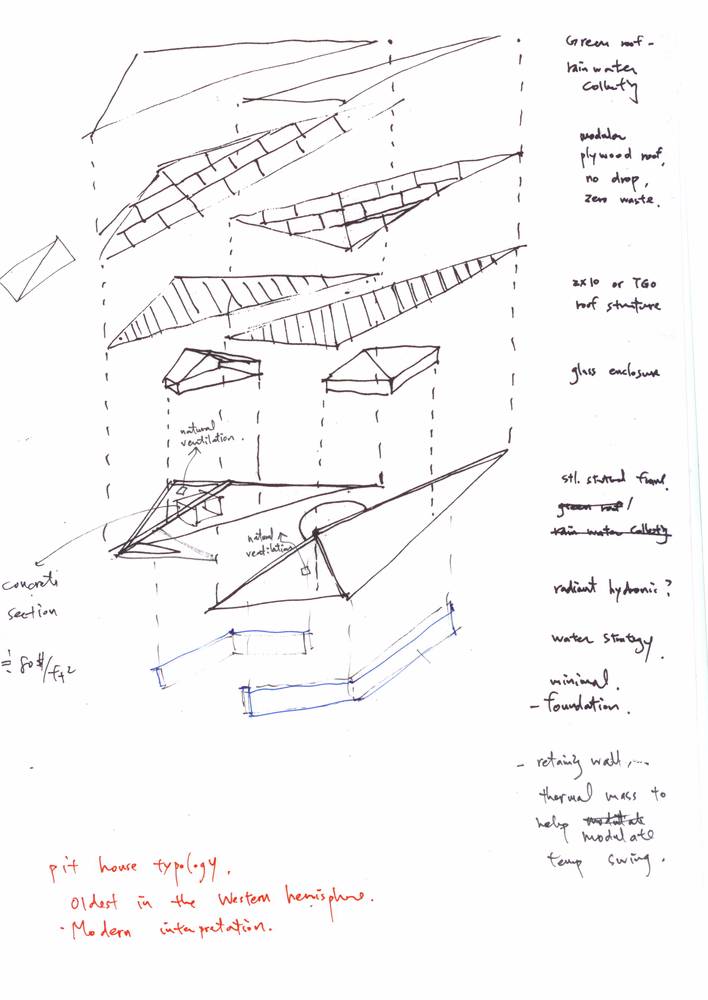 Green roof -
rain water
modular
plywood roof,
no drop,
zero waste.
2x10 or TGO
roof structure
glass enclosure
natural
ventilation.
stl. frame.
green roof /
rain water
natural
ventilation
concrete
section
80$/ft2
radiant hydronic?
water strategy.
minimal.
- foundation.
- retaing wall, ...
thermal mass to
help modulate
modulate
temp swing.
pit house typology.
Oldest in the Western hemisphere.
- Modern interpretation.